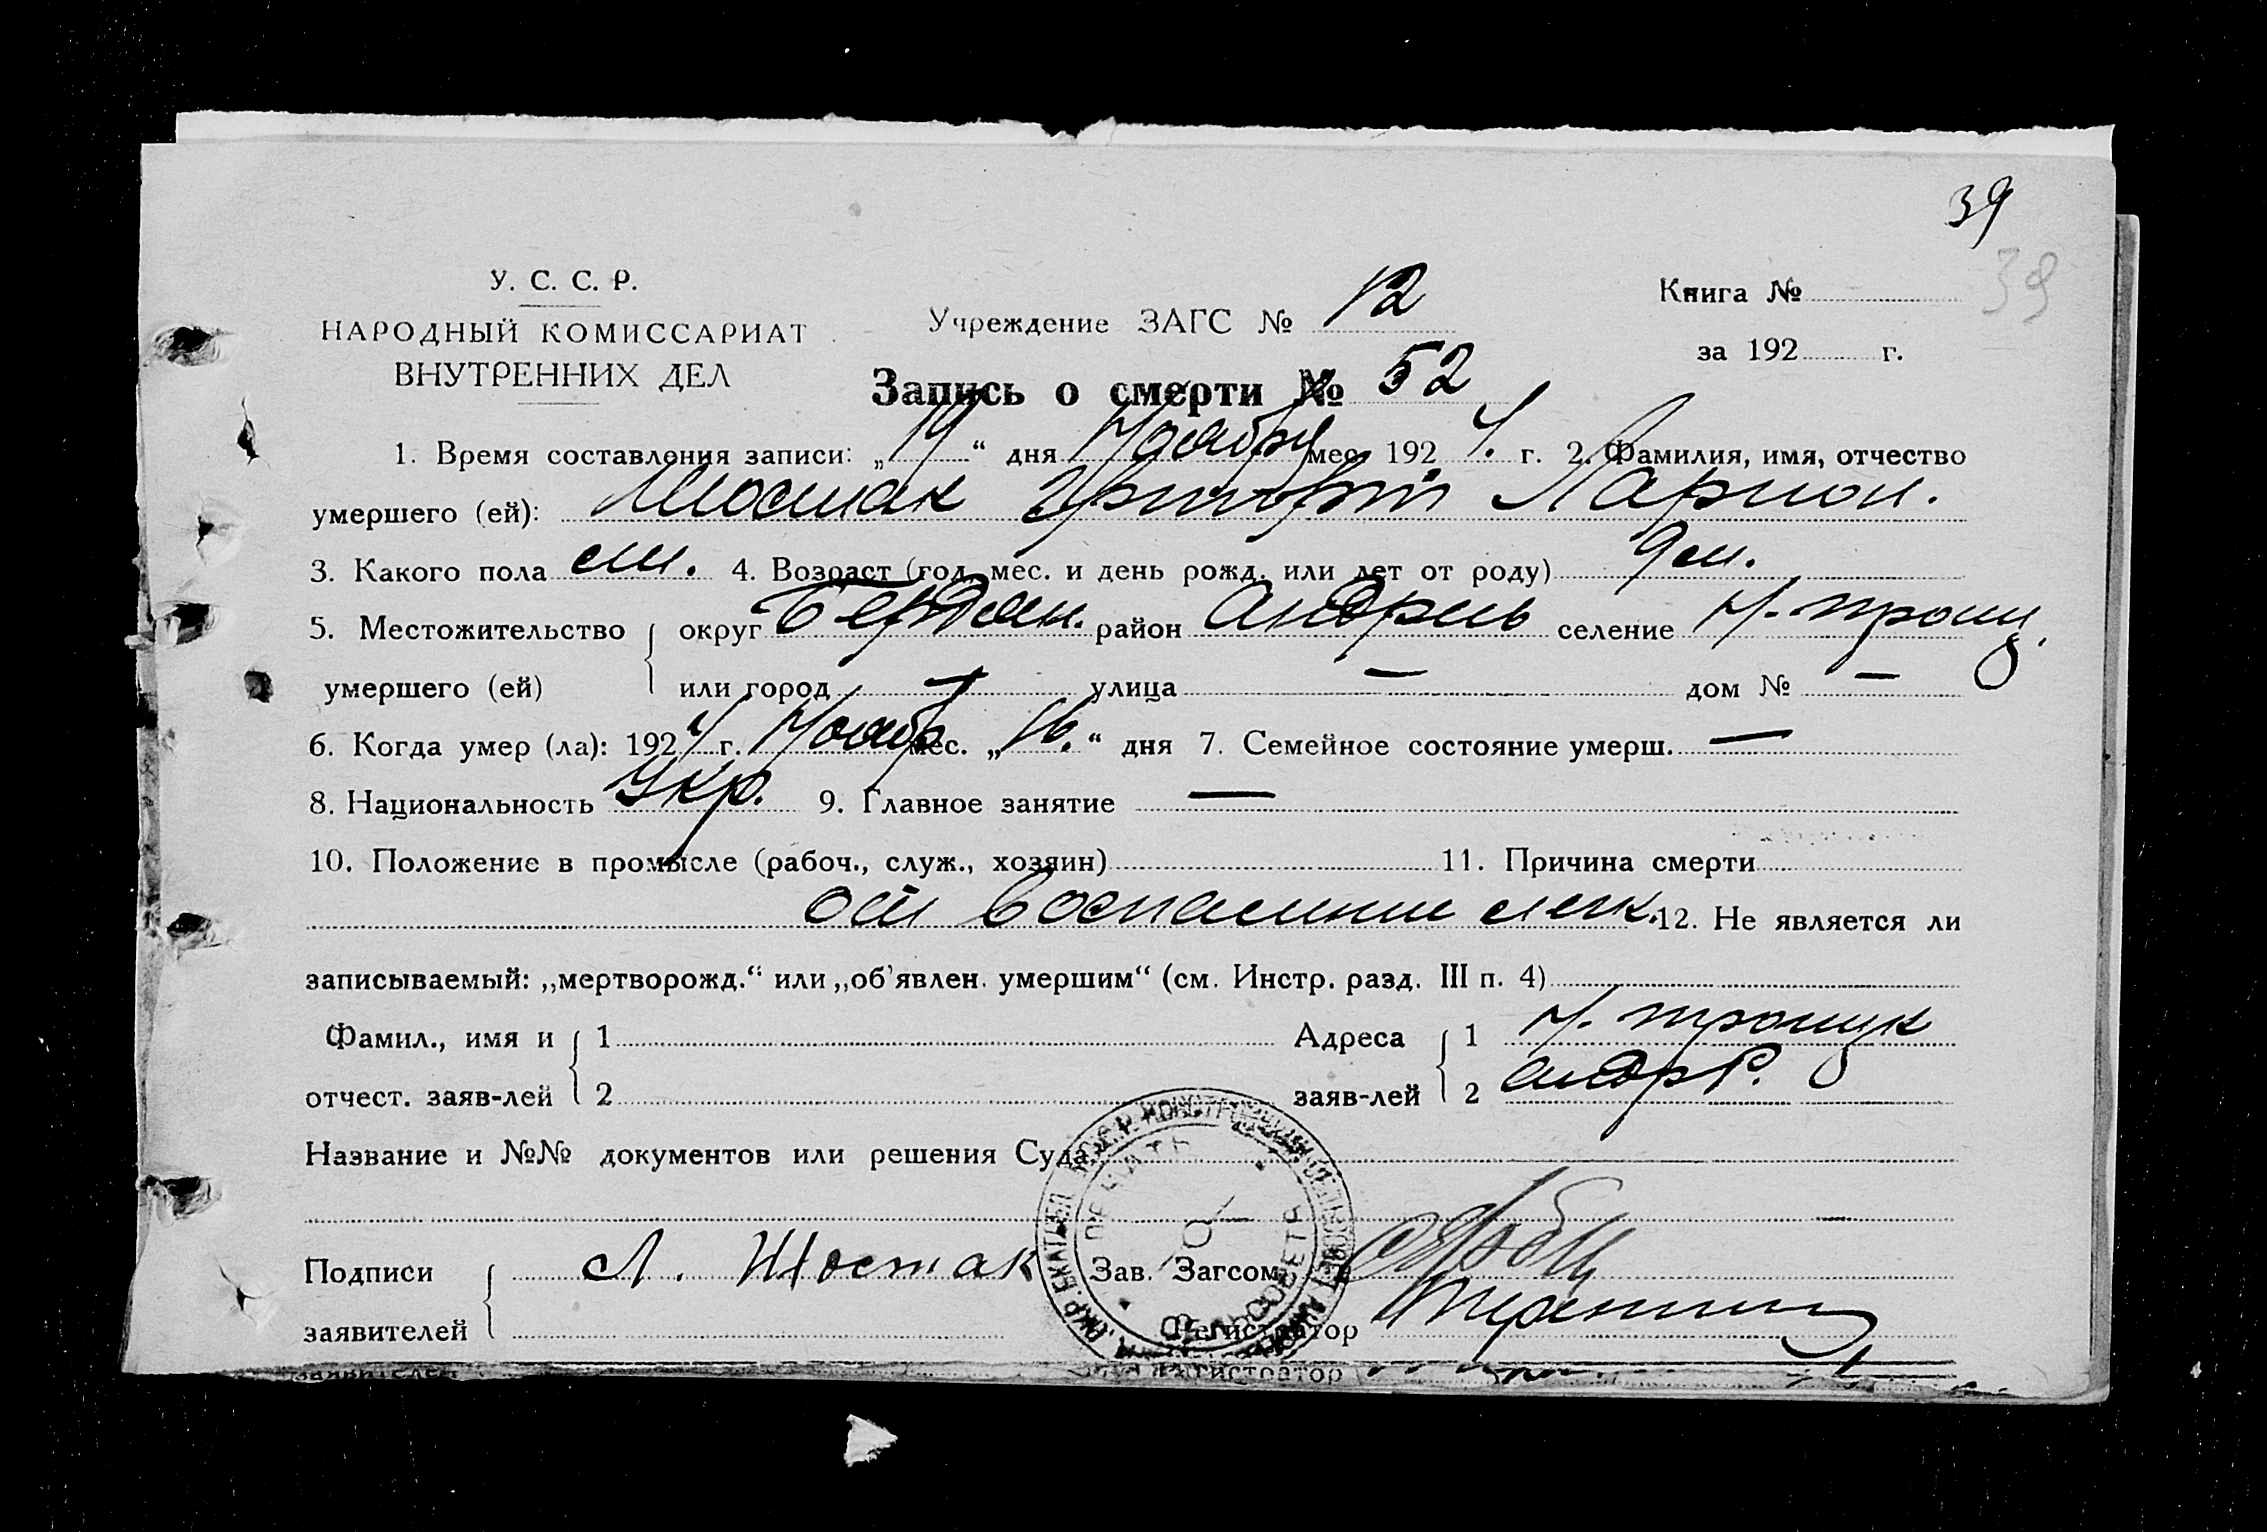 39
39
У. С. С. Р.
НАРОДНЫЙ КОМИССАРИАТ
ВНУТРЕННИХ ДЕЛ
Учреждение ЗАГС № 12
Книга №
за 192 г.
Запись о смерти № 52
1. Время составления записи: „19“ дня Ноября мес. 1924. г. 2. Фамилия, имя, отчество
умершего (ей): Шостак Григорій Ларион.
3. Какого пола м. 4. Возраст (год, мес. и день рожд. или лет от роду) 9 м.
5. Местожительство округ Бердян. район Андреев селение Н.-троиц.
умершего (ей) или город — улица — дом № —
6. Когда умер (ла): 1924 г. Ноябр мес. „16.“ дня 7. Семейное состояние умерш. —
8. Национальность Укр. 9. Главное занятие —
10. Положение в промысле (рабоч., служ., хозяин) 11. Причина смерти
от воспаление легк. 12. Не является ли
записываемый: „мертворожд.“ или „об'явлен. умершим“ (см. Инстр. разд. III п. 4)
Фамил., имя и 1 Адреса 1 Н.
отчест. заяв-лей 2 заяв-лей 2 Андр Р.
Название и №№ документов или решения Суда
Подписи Л. Шостак Зав. Загсом
заявителей Регистратор
ПЕЧАТЬ
СЕЛЬСОВЕТА
заявителей Регистратор